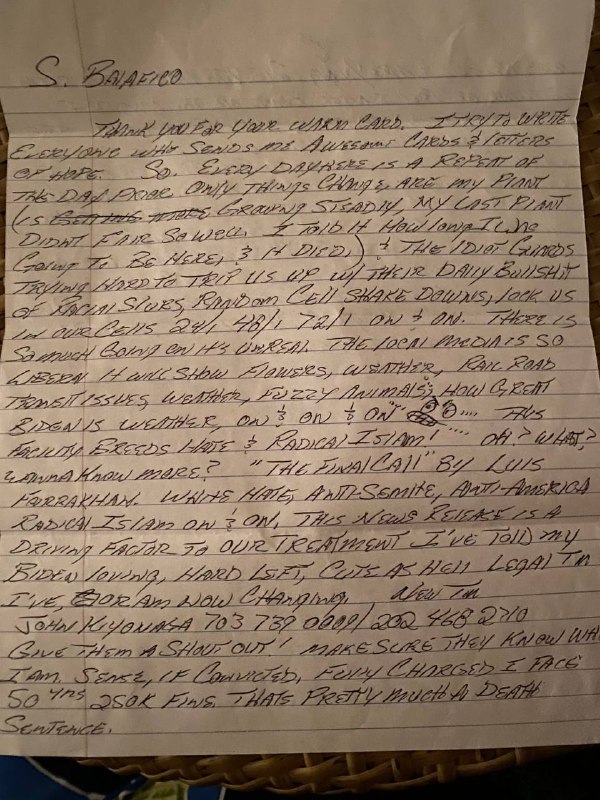 S. Balafico
Thank you for your warm card. I try to write
everyone who sends me awesome cards & letters
of hope. So. Every day here is a repeat of
the day prior only things change are my plant
(is growing steadily my last plant
didnt fair so well. I told it how long I was
going to be here, & it died.) & the idiot guards
trying hard to trip us up w/ their daily bullshit
of racial slurs, random cell shake downs, lock us
in our cells 24/1 48/1 72/1 on & on. There is
so much going on it's unreal. The local media is so
liberal it will show flowers, weather, rail road
transit issues, weather, fuzzy animals, how great
Biden is weather, on & on & on" .... This
facility breeds hate & radical Islam! .... Oh? What?
wanna know more? "The Final Call" by Luis
Farrakhan. White hate, anti-semite, anti-America
radical Islam on & on. This news release is a
driving factor to our treatment I've told my
Biden loving, hard left, cute as hell legal tm
I've, or am now changing. New tm
John Kiyonaga 703 739 0009/202 468 2710
Give them a shout out! Make sure they know wh
I am. Sense, if convicted, fully charged I face
50 yrs 250K fine. Thats pretty much a death
sentence.